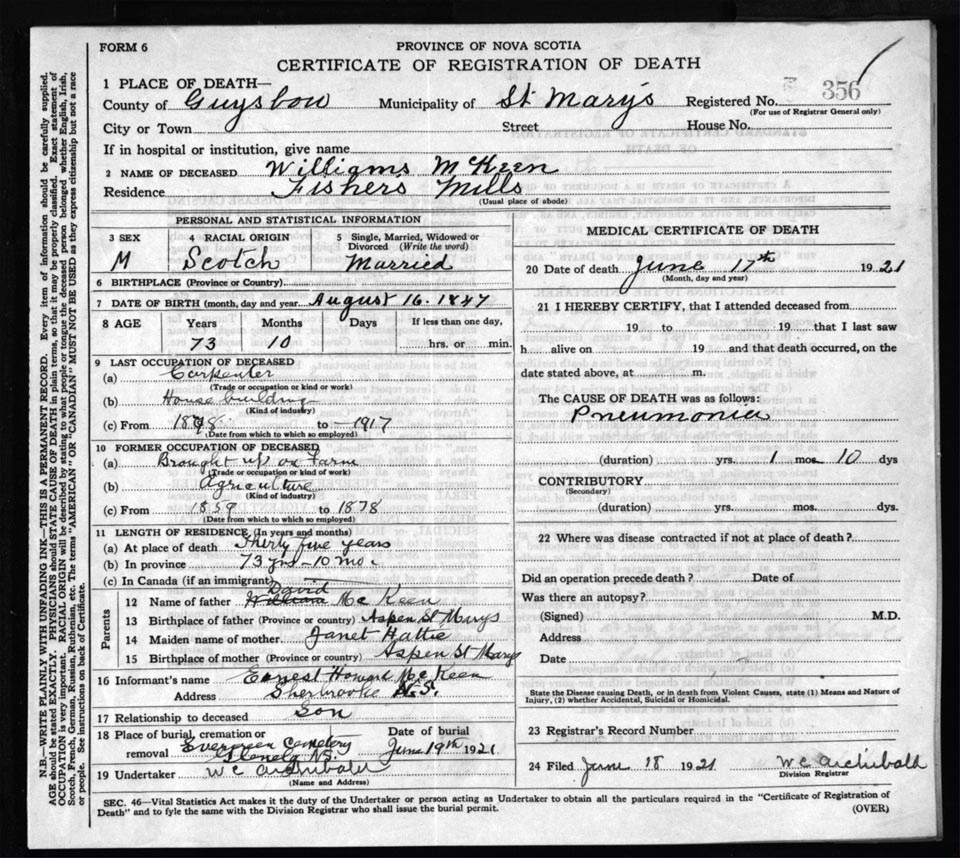 FORM 6
PROVINCE OF NOVA SCOTIA
CERTIFICATE OF REGISTRATION OF DEATH
1 PLACE OF DEATH—
356
County of Guysboro Municipality of St Mary's Registered No.
(For use of Registrar General only)
City or Town Street House No.
If in hospital or institution, give name
2 NAME OF DECEASED Williams McKeen
Residence Fishers Mills
(Usual place of abode)
PERSONAL AND STATISTICAL INFORMATION
3 SEX 4 RACIAL ORIGIN 5 Single, Married, Widowed or Divorced (Write the word)
M Scotch Married
6 BIRTHPLACE (Province or Country)
7 DATE OF BIRTH (month, day and year August 16. 1847
8 AGE Years Months Days If less than one day,
73 10 hrs. or min.
9 LAST OCCUPATION OF DECEASED
(a) Carpenter
(Trade or occupation or kind or work)
(b) House building
(Kind of industry)
(c) From to 1917
(Date from which to which so employed)
10 FORMER OCCUPATION OF DECEASED
(a) Brought up on Farm
(Trade or occupation or kind of work)
(b) Agriculture
(Kind of industry)
(c) From 1859 to 1878
(Date from which to which so employed)
11 LENGTH OF RESIDENCE (In years and months)
(a) At place of death Thirty five years
(b) In province 73 yrs - 10 mo.
(c) In Canada (if an immigrant)
Parents
David
12 Name of father William McKeen
13 Birthplace of father (Province or country) Aspen St Marys
14 Maiden name of mother Janet Hattie
15 Birthplace of mother (Province or country) Aspen St Marys
16 Informant's name Earnest Howard McKeen
Address Sherbrooke N.S.
17 Relationship to deceased Son
18 Place of burial, cremation or Date of burial
removal Evergreen Cemetery June 19th 1921
Glenelg NS.
19 Undertaker W C Archibald
(Name and Address)
MEDICAL CERTIFICATE OF DEATH
20 Date of death June 17th 1921
(Month, day and year)
21 I HEREBY CERTIFY, that I attended deceased from
19 to 19 that I last saw
h alive on 19 and that death occurred, on the
date stated above, at m.
The CAUSE OF DEATH was as follows:
Pneumonia
(duration) yrs. 1 mos. 10 dys
CONTRIBUTORY
(Secondary)
(duration) yrs. mos. dys.
22 Where was disease contracted if not at place of death?
Did an operation precede death? Date of
Was there an autopsy?
(Signed) M.D.
Address
Date
State the Disease causing Death, or in death from Violent Causes, state (1) Means and Nature of
Injury, (2) whether Accidental, Suicidal or Homicidal.
23 Registrar's Record Number
24 Filed June 18 1921 W C Archibald
Division Registrar
SEC. 46—Vital Statistics Act makes it the duty of the Undertaker or person acting as Undertaker to obtain all the particulars required in the "Certificate of Registration of
Death" and to fyle the same with the Division Registrar who shall issue the burial permit.
(OVER)
N.B.—WRITE PLAINLY WITH UNFADING INK—THIS IS A PERMANENT RECORD. Every item of information should be carefully supplied.
AGE should be stated EXACTLY. PHYSICIANS should STATE CAUSE OF DEATH in plain terms, so that it may be properly classified. Exact statement of
OCCUPATION is very important. RACIAL ORIGIN will be described by stating to what people or tongue the deceased person belonged whether English, Irish,
Scotch, French, German, Russian, Ruthenian, etc. The terms "AMERICAN" OR "CANADIAN" MUST NOT BE USED as they express citizenship but not a race
or people. See instructions on back of Certificate.